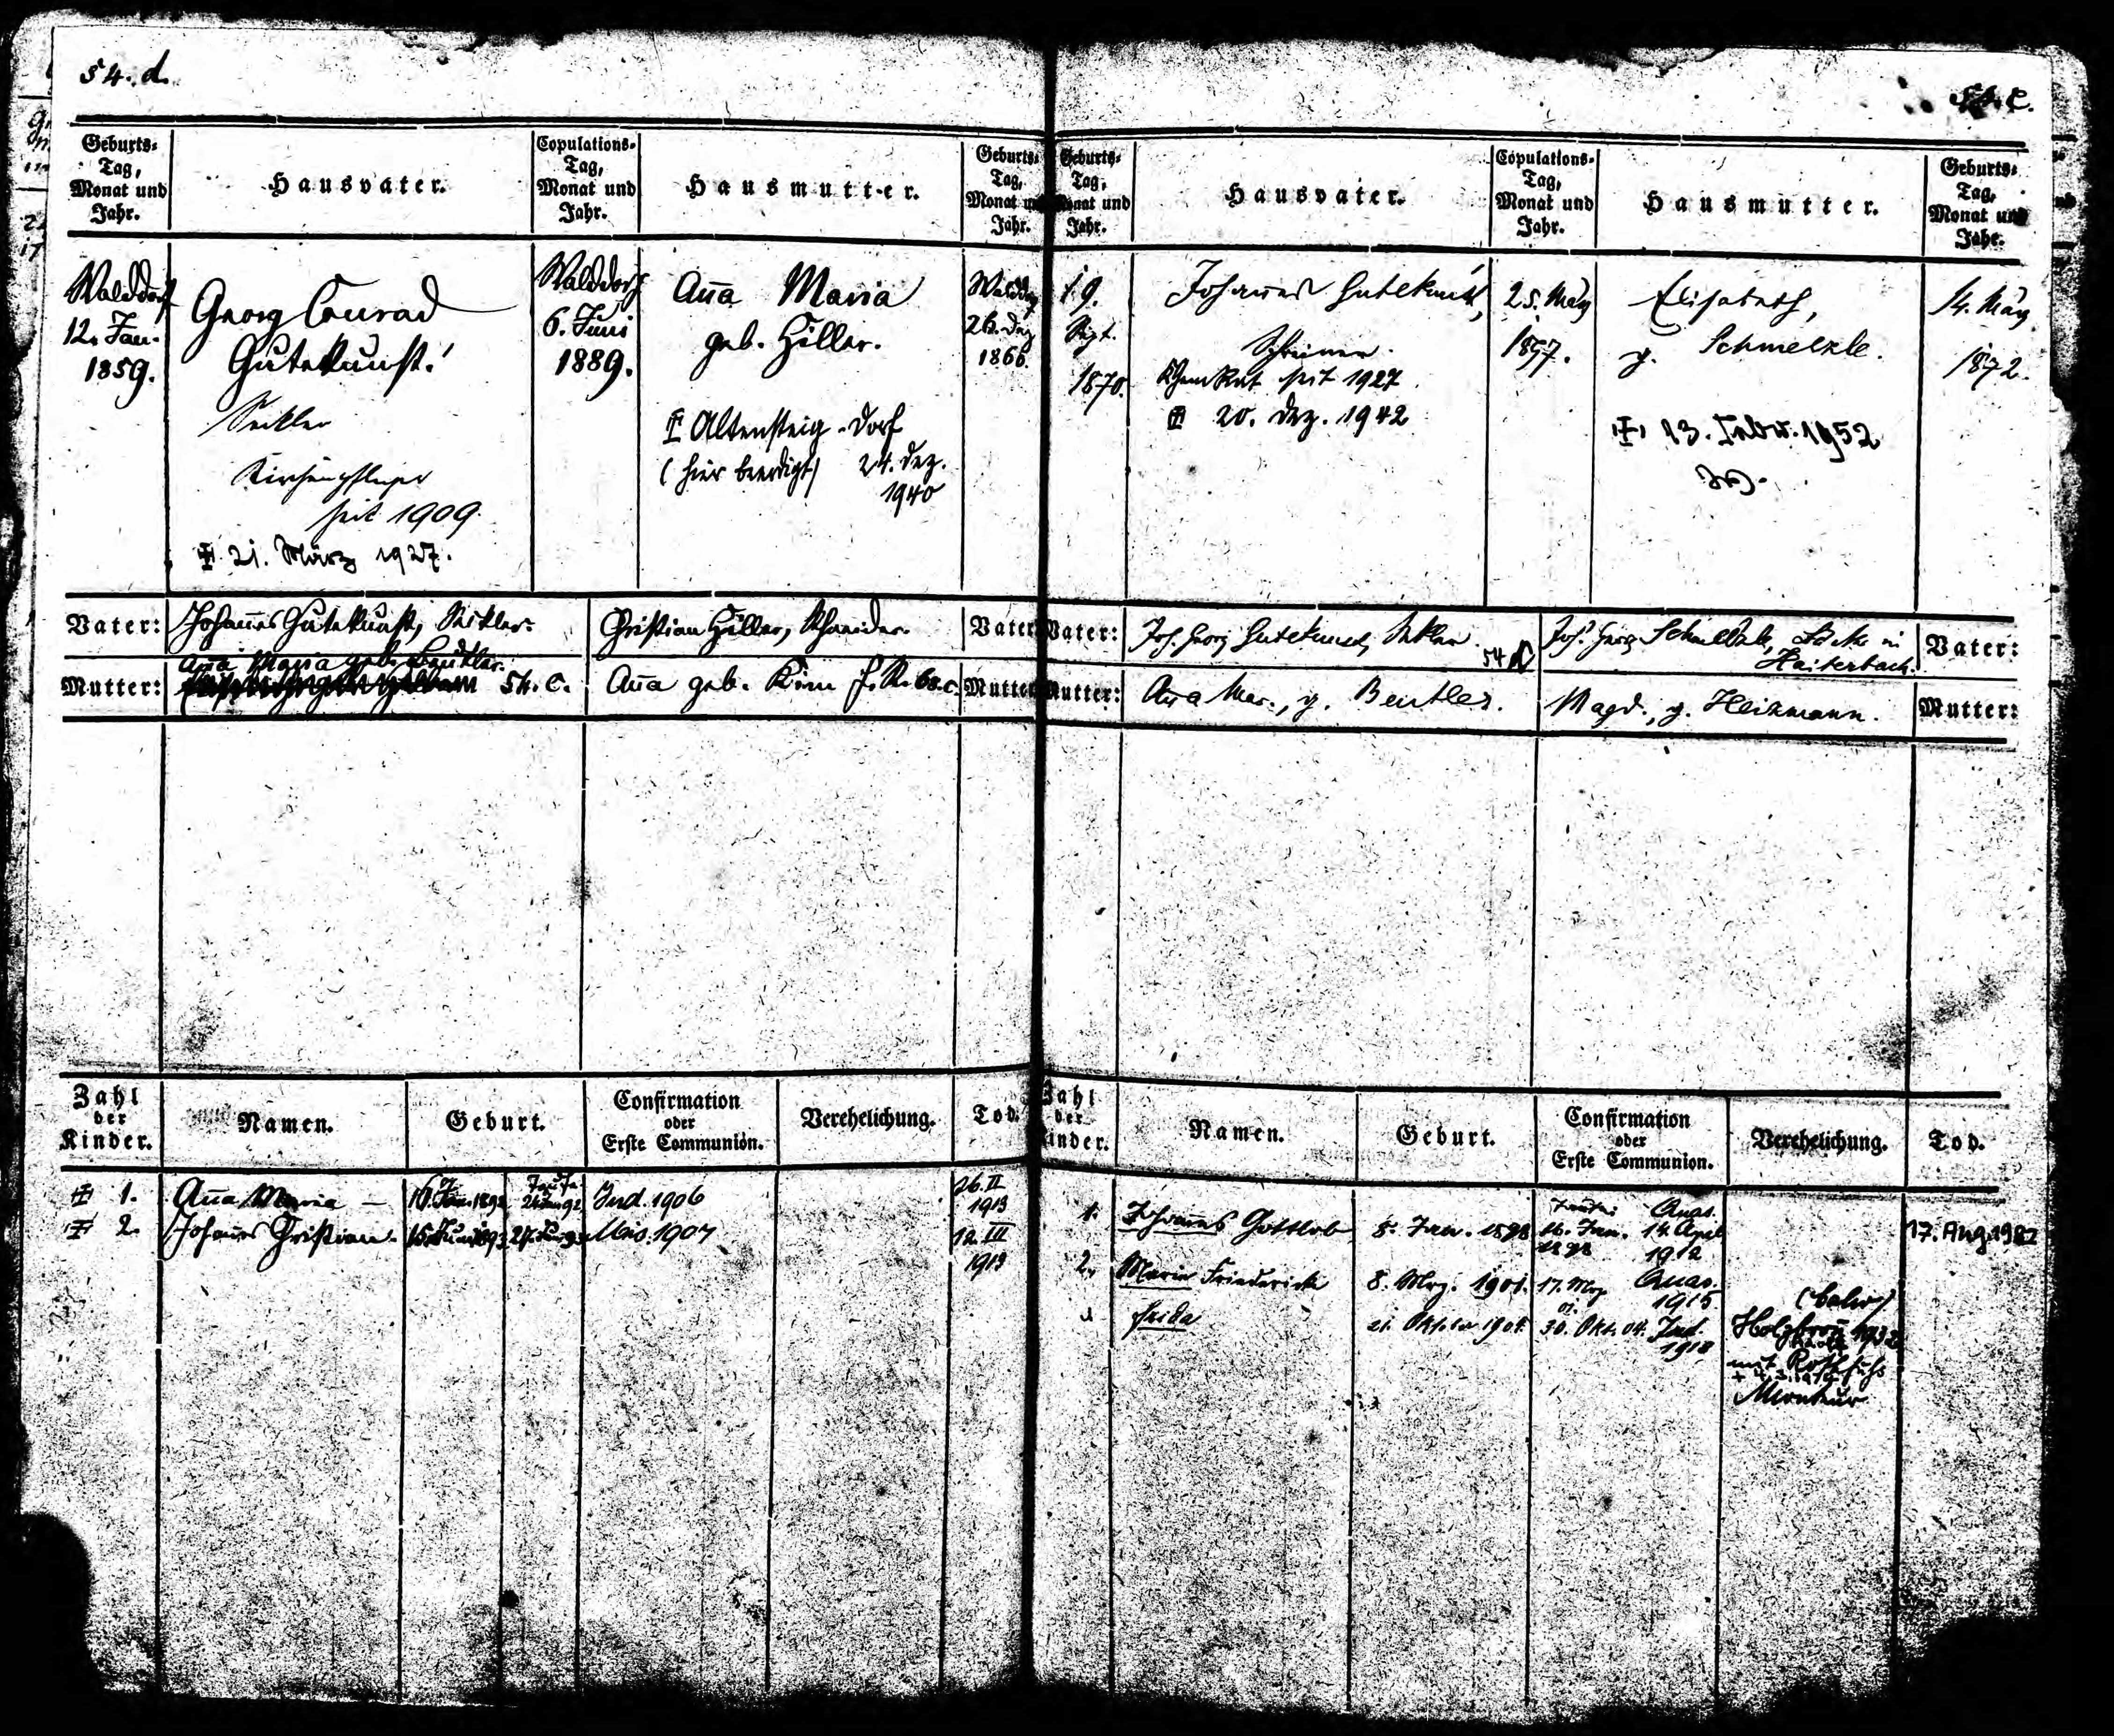 54. d.
Geburts-
Tag,
Monat und
Jahr.
Hausvater.
Copulations-
Tag,
Monat und
Jahr.
Hausmutter.
Geburts-
Tag,
Monat
Jahr.
Walddorf
12. Jan.
1859.
Georg Conrad
Gutekunst.
Sekler
Kirchenpfleger
seit 1909.
21. März 1927.
Walddorf
6. Juni
1889.
Aña Maria
geb. Hiller.
Altensteig-Dorf
(hier beerdigt) 24. Dez.
1940
26. Dez
1866.
Vater:
Johañes Gutekunst, Sekler.
Christian Hiller, Schneider.
Vater
Mutter:
Aña Maria geb. Beutler.
54. c.
Aña geb. Kirn f. R.
Mutter
Zahl
der
Kinder.
Namen.
Geburt.
Confirmation
oder
Erste Communion.
Verehelichung.
Tod.
1.
Aña Maria
Taufe
Jud. 1906
26. II
1919
2.
Johañes Christian.
Mis. 1907
12. III
1919
Geburts-
Tag,
Monat und
Jahr.
Hausvater.
Copulations-
Tag,
Monat und
Jahr.
Hausmutter.
Geburts-
Tag,
Monat und
Jahr.
19.
Sept.
1870.
Johañes Gutekunst,
Schreiner.
seit 1927
20. Dez. 1942
25. März
1897.
Elisabeth,
g. Schmelzle.
13. Febr. 1952
14. März
1872.
Vater:
Joh. Georg Gutekunst, Sekler
54
Joh. Georg Schmelzle, in
Haiterbach.
Vater:
Mutter:
Aña Mar., g. Beutler.
Magd., g. Heizmann.
Mutter:
Zahl
der
Kinder.
Namen.
Geburt.
Confirmation
oder
Erste Communion.
Verehelichung.
Tod.
1.
Johannes Gottlob
8. Jan. 1898
16. Jan.
1898
14. April
1912
17. Aug.
2.
Maria Friederike
8. Mrz. 1901.
17. Mrz
01.
1915
Frida
21. Oktober 1904.
30. Okt. 04.
Jud.
1918
(Calw)
mit Rothfuß
Monteur